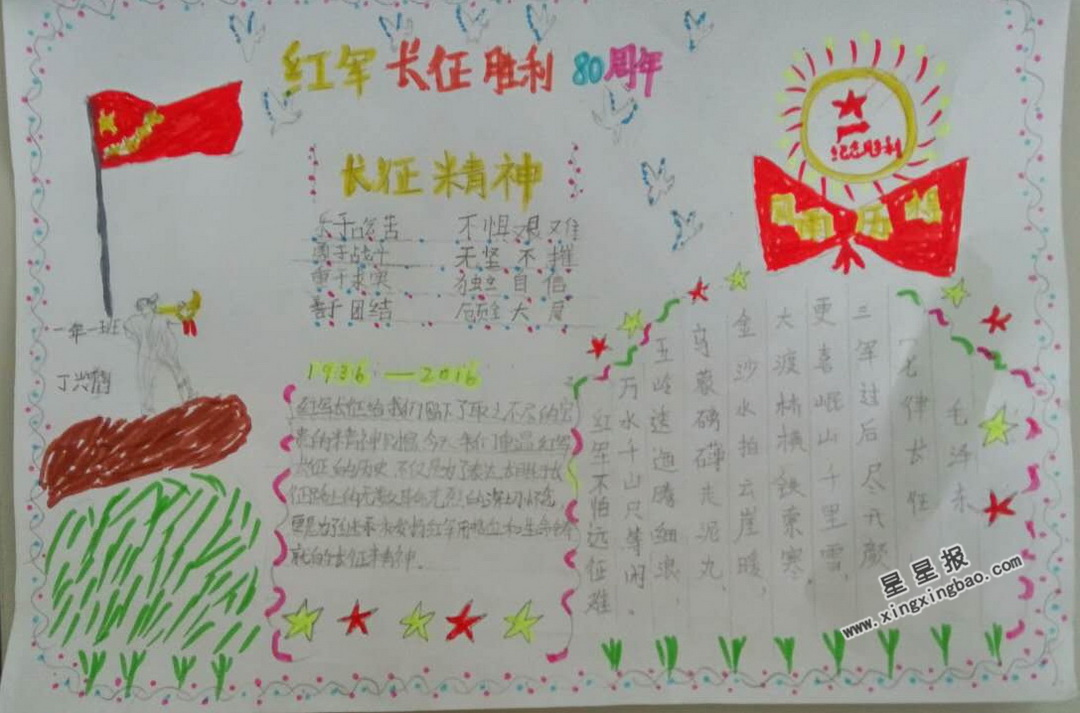 红军长征胜利80周年
长征精神
乐于吃苦 不惧艰难
勇于战斗 无坚不摧
重于求实 独立自信
善于团结 顾全大局
风雨历程
一年一班
1936—2016
红军长征给我们留下了取之不尽的宝
贵的精神财富。今天,我们重温红军
长征的历史,不仅是为了表达
征路上的先烈的深切怀念,
更是为了继承和发扬红军用鲜血和生命铸
就的长征精神。
红军不怕远征难
万水千山只等闲。
五岭逶迤腾细浪,
乌蒙磅礴走泥丸
金沙水拍云崖暖,
大渡桥横铁索寒.
更喜岷山千里雪,
三军过后尽开颜
七律长征
毛泽东
星星报
www.xingxingbao.com